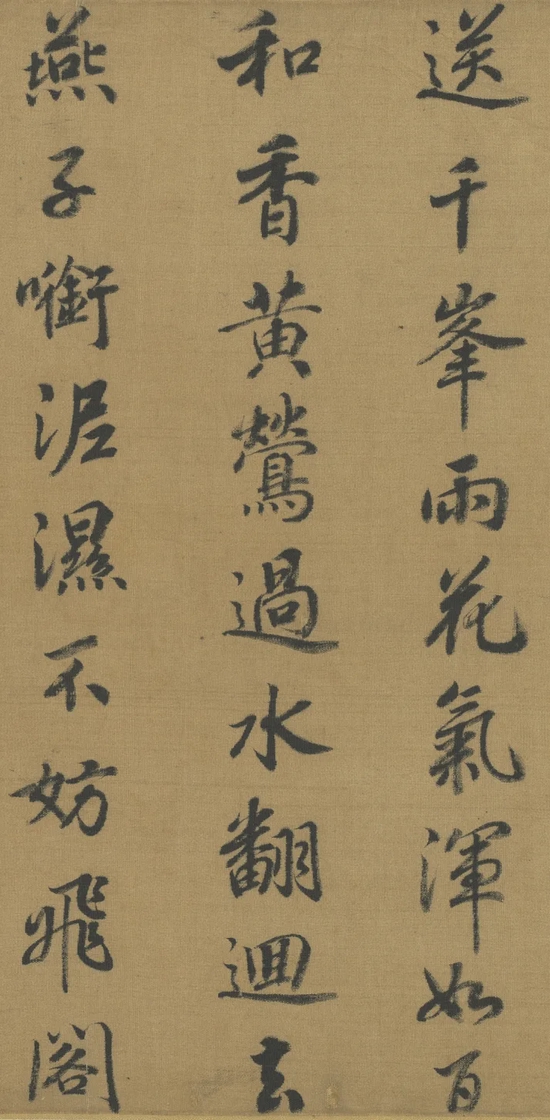 送千峯雨花氣渾如百
和香黄鶯過水翻迴去
燕子啣泥濕不妨飛閣